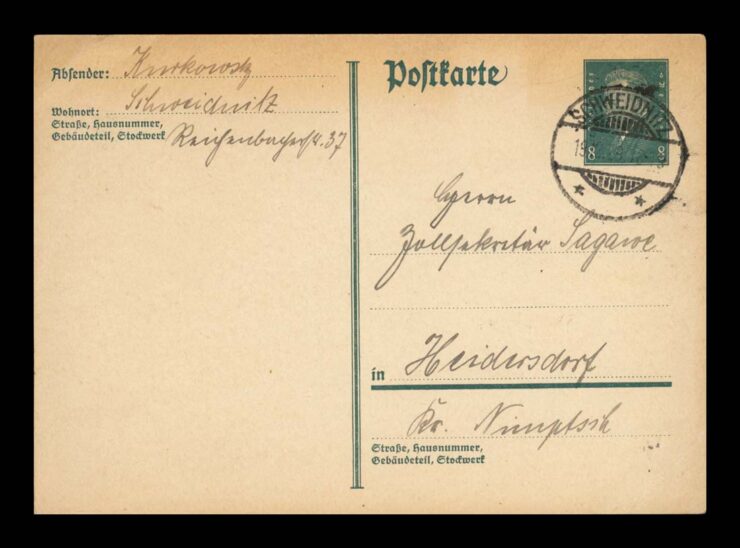 Absender: Kurkowsky
Wohnort: Schweidnitz
Straße, Hausnummer,
Gebäudeteil, Stockwerk Reichenbacherstr. 37
Postkarte
SCHWEIDNITZ
8 8
Herrn
Zollsekretär Sagawe
in Heidersdorf
Kr. Nimptsch
Straße, Hausnummer,
Gebäudeteil, Stockwerk